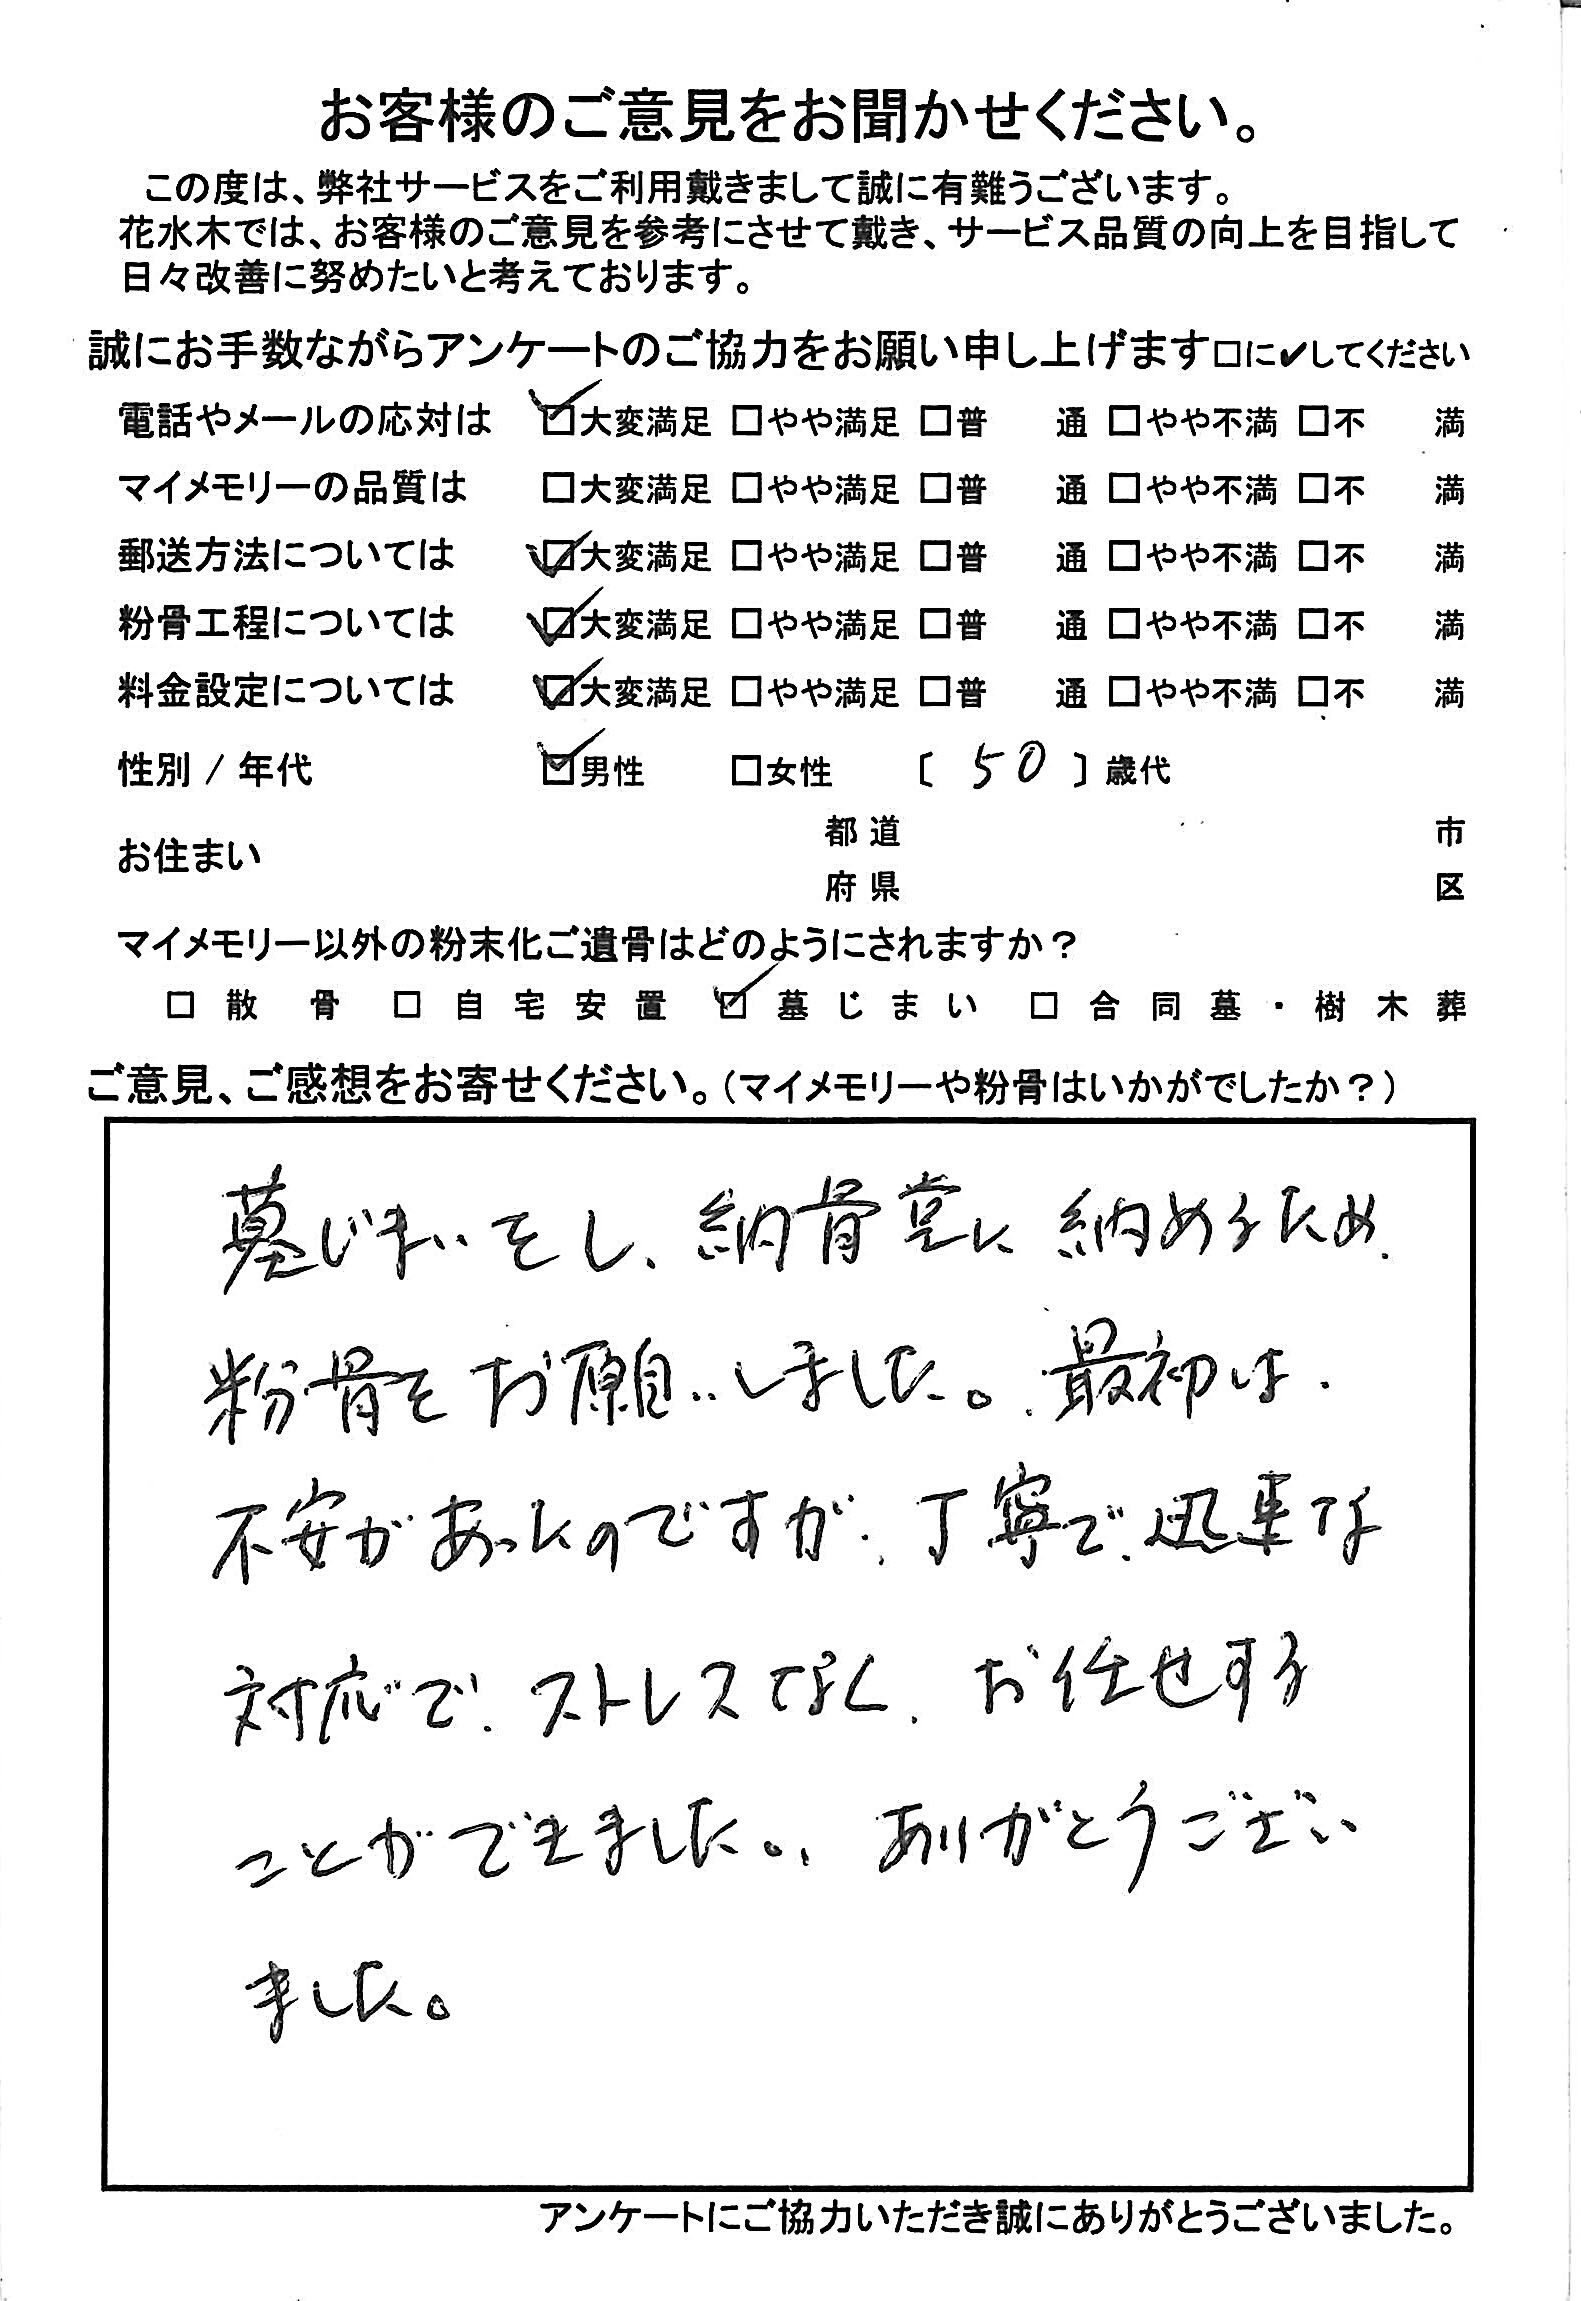 お客様のご意見をお聞かせください。
この度は、弊社サービスをご利用戴きまして誠に有難うございます。
花水木では、お客様のご意見を参考にさせて戴き、サービス品質の向上を目指して
日々改善に努めたいと考えております。
誠にお手数ながらアンケートのご協力をお願い申し上げます□に✔してください
電話やメールの応対は ☑大変満足 □やや満足 □普 通 □やや不満 □不 満
マイメモリーの品質は □大変満足 □やや満足 □普 通 □やや不満 □不 満
郵送方法については ☑大変満足 □やや満足 □普 通 □やや不満 □不 満
粉骨工程については ☑大変満足 □やや満足 □普 通 □やや不満 □不 満
料金設定については ☑大変満足 □やや満足 □普 通 □やや不満 □不 満
性別 / 年代 ☑男性 □女性 〔 50 〕歳代
都道 市
お住まい
府県 区
マイメモリー以外の粉末化ご遺骨はどのようにされますか？
□ 散 骨 □ 自 宅 安 置 ☑ 墓 じ ま い □ 合 同 墓 ・ 樹 木 葬
ご意見、ご感想をお寄せください。（マイメモリーや粉骨はいかがでしたか？）
墓じまいをし、納骨堂に納めるため、
粉骨をお願いしました。最初は、
不安があったのですが、丁寧で、迅速な
対応で、ストレスなく、お任せする
ことができました。ありがとうござい
ました。
アンケートにご協力いただき誠にありがとうございました。